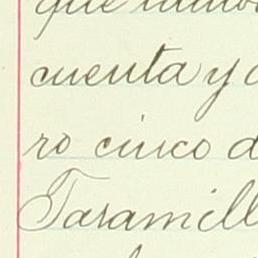 que
cuenta y
ro cinco d
Jaramill